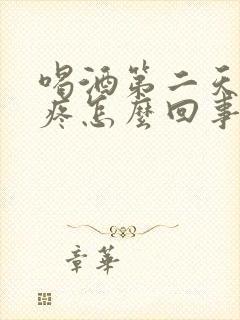 喝酒第二天
疼怎麼回事
章華